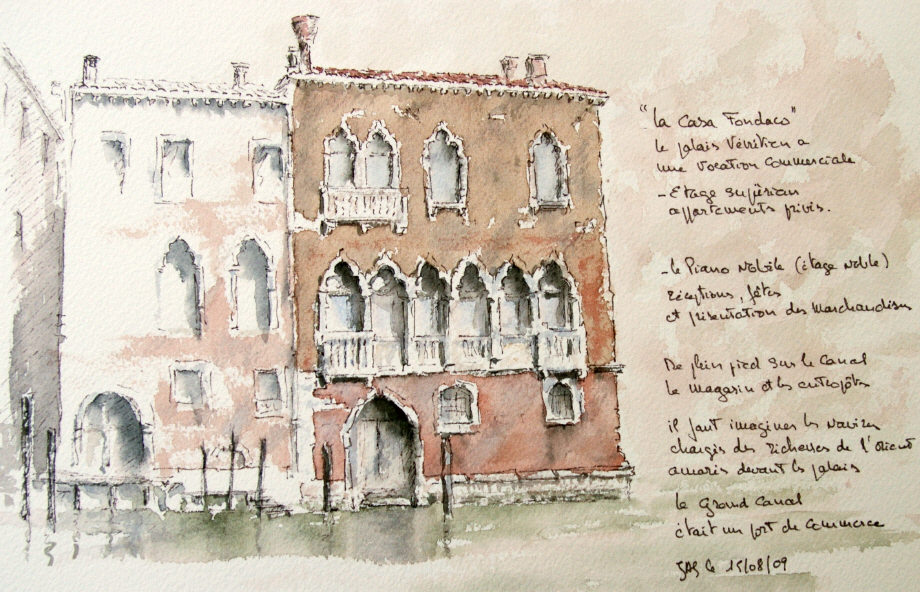 "La Casa Fondaco"
le palais Vénitien a
une vocation commerciale
- Etage supérieur
appartements privés.
- le Piano Nobile (étage noble)
réceptions, fêtes
et présentation des marchandises
De plein pied sur le canal
le magasin et les entrepôts
il faut imaginer les navires
chargés des richesses de l'orient
amarrés devant les palais
le Grand Canal
était un port de commerce
le 15/08/09